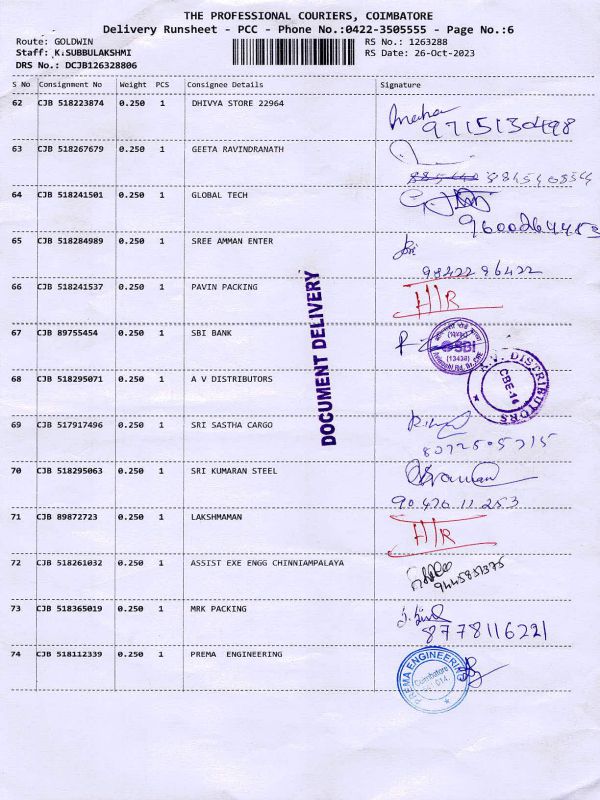 THE PROFESSIONAL COURIERS, COIMBATORE
Delivery Runsheet - PCC - Phone No.:0422-3505555 - Page No.:6
Route: GOLDWIN RS No.: 1263288
Staff: K.SUBBULAKSHMI RS Date: 26-Oct-2023
DRS No.: DCJB126328806
S No Consignment No Weight PCS Consignee Details Signature
62 CJB 518223874 0.250 1 DHIVYA STORE 22964
9715130498
63 CJB 518267679 0.250 1 GEETA RAVINDRANATH
64 CJB 518241501 0.250 1 GLOBAL TECH
65 CJB 518284989 0.250 1 SREE AMMAN ENTER
9842296422
66 CJB 518241537 1 0.250 PAVIN PACKING H/R
67 CJB 89755454 0.250 1 SBI BANK
SBI
(13438)
68 CJB 518295071 0.250 1 A V DISTRIBUTORS
A.V. DISTRIBUTORS
CBE-14
DOCUMENT DELIVERY
69 CJB 517917496 0.250 1 SRI SASTHA CARGO
70 CJB 518295063 0.250 1 SRI KUMARAN STEEL
90.476.11.253
71 CJB 89872723 0.250 1 LAKSHMAMAN H/R
72 CJB 518261032 0.250 1 ASSIST EXE ENGG CHINNIAMPALAYA
9445851375
73 CJB 518365019 0.250 1 MRK PACKING
8778116221
74 CJB 518112339 0.250 1 PREMA ENGINEERING
PREMA ENGINEERING
Coimbatore